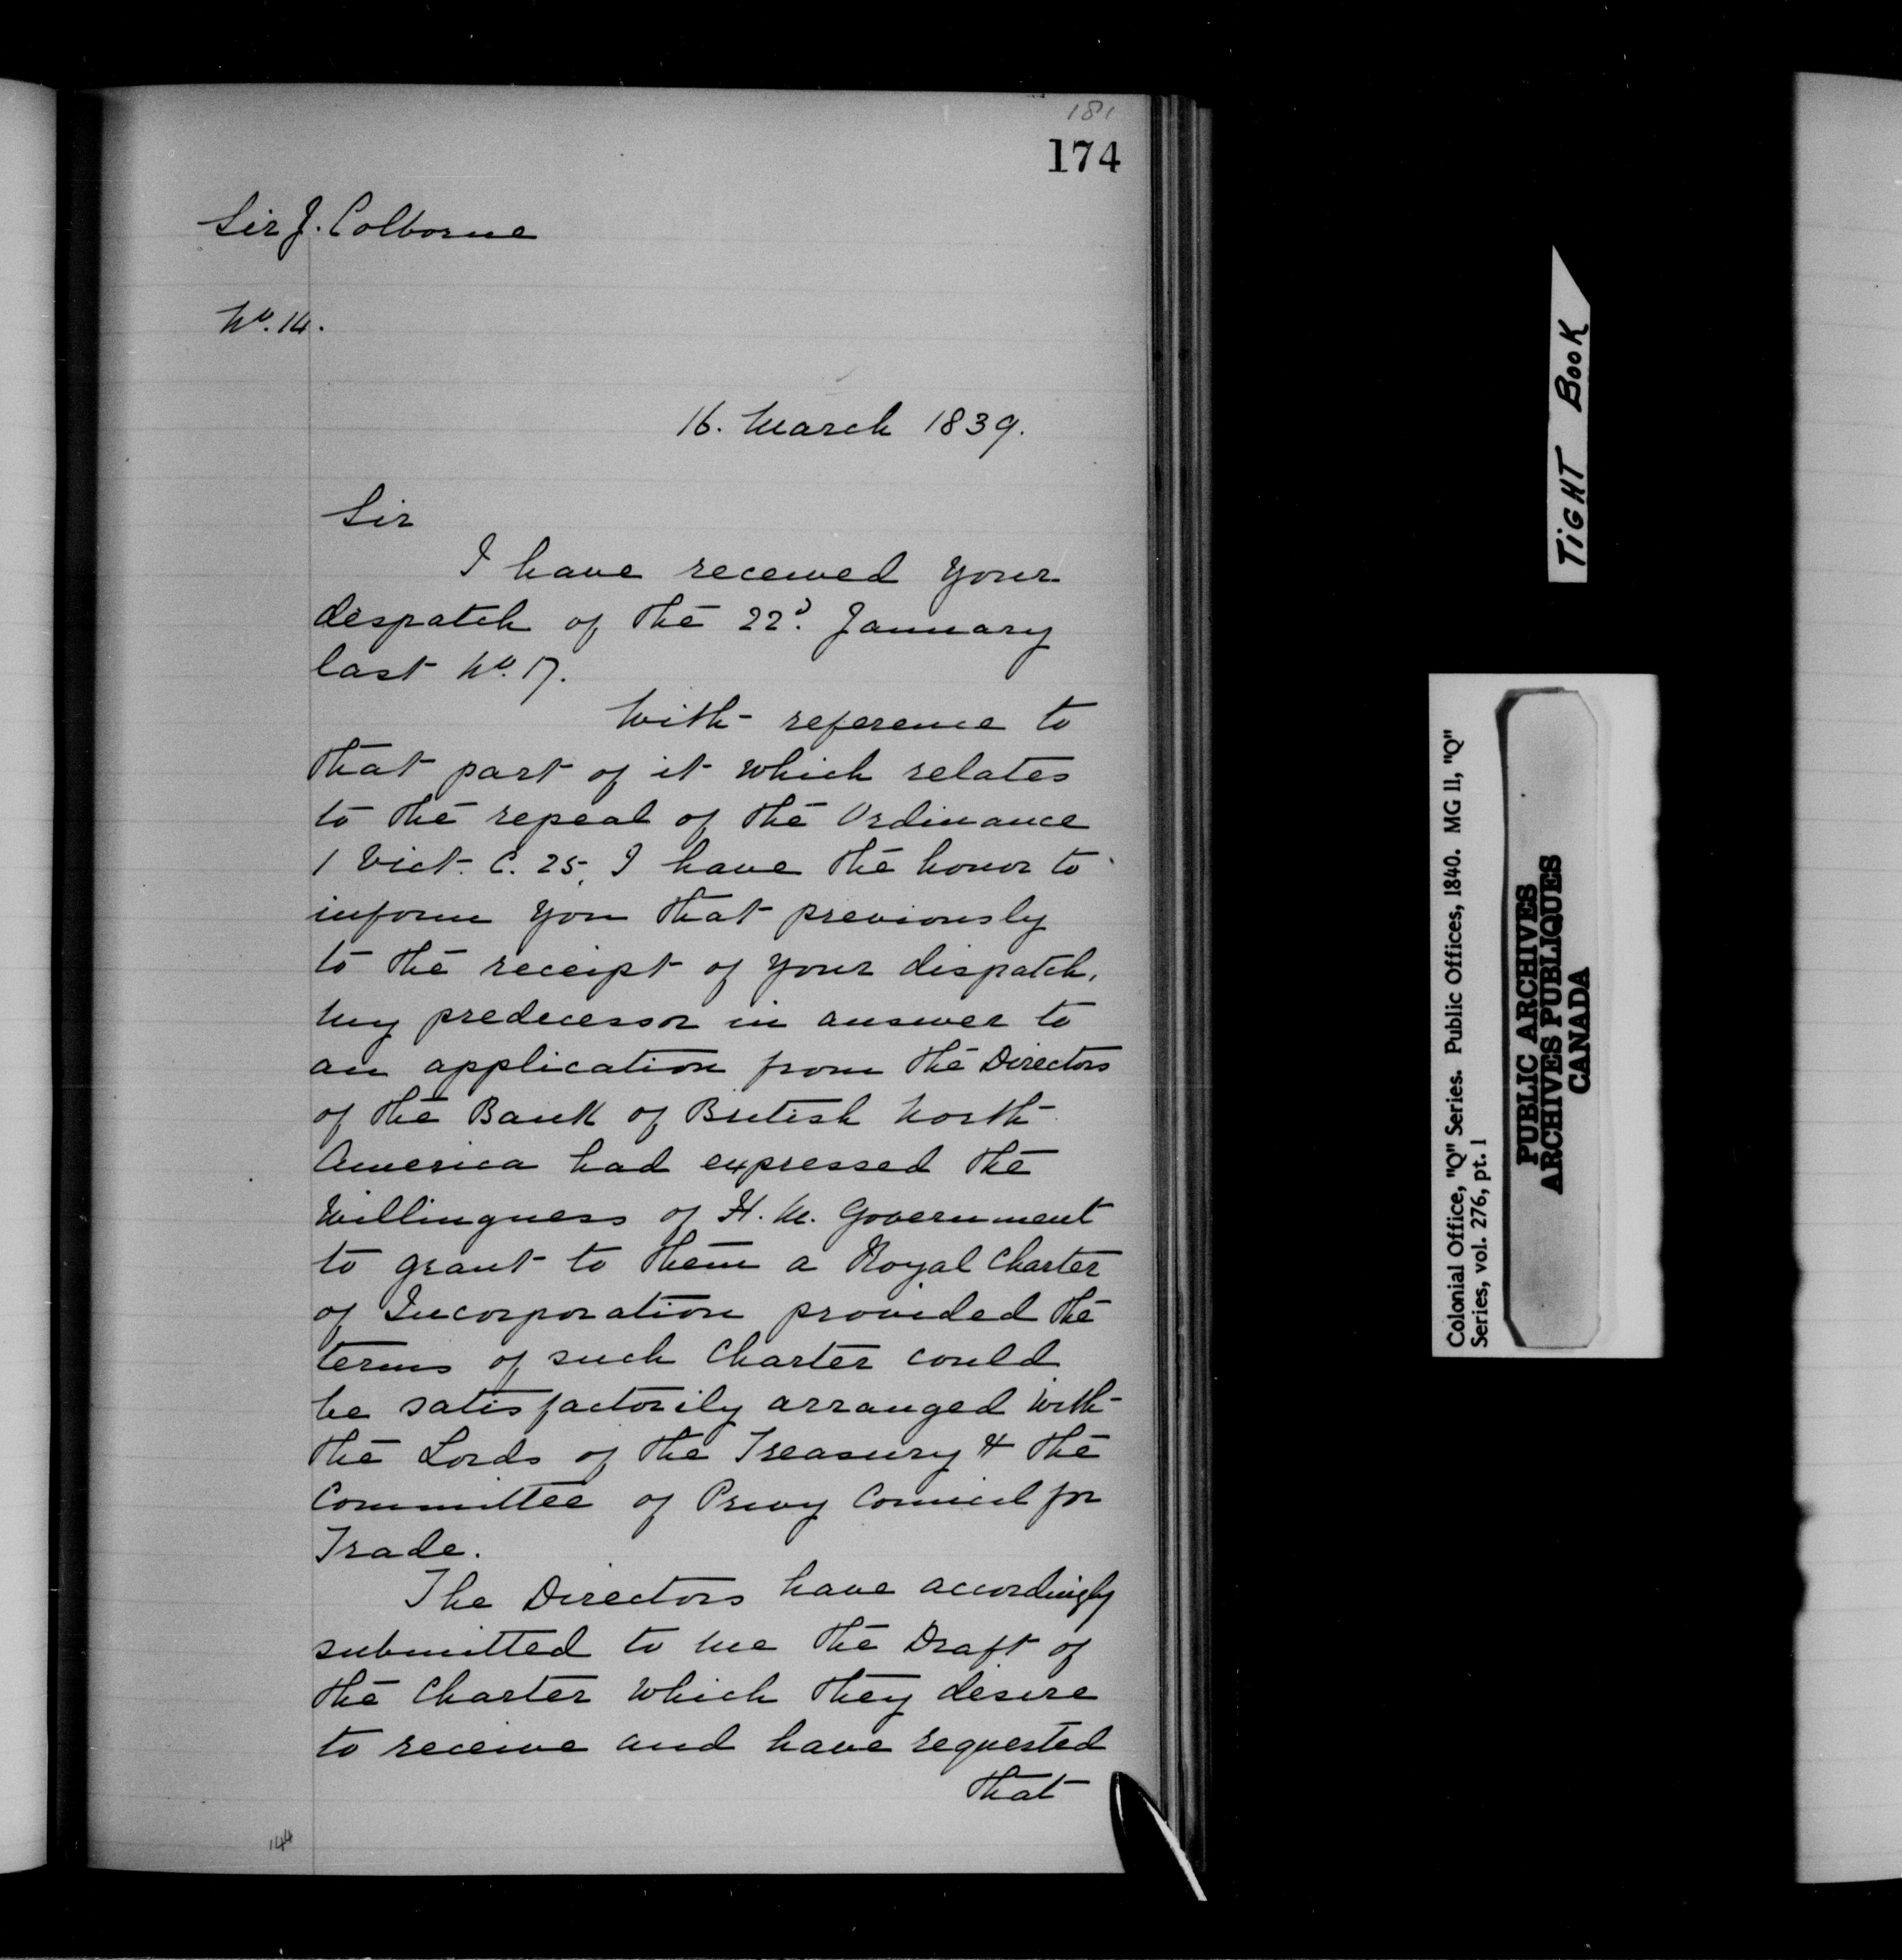 181
174
Sir J. Colborne
No. 14.
16. March 1839.
Sir
I have received your
despatch of the 22d. January
last No. 17.
With reference to
that part of it which relates
to the repeal of the Ordinance
1 Vict. C. 25, I have the honor to
inform you that previously
to the receipt of your dispatch,
my predecessor in answer to
an application from the Directors
of the Bank of British North
America had expressed the
Willingness of H. M. Government
to grant to them a Royal Charter
of Incorporation provided the
terms of such Charter could
be satisfactorily arranged with
the Lords of the Treasury & the
Committee of Privy Council for
Trade.
The Directors have accordingly
submitted to me the Draft of
the Charter which they desire
to receive and have requested
that
144
TiGHT BOOK
Colonial Office, "Q" Series. Public Offices, 1840. MG 11, "Q"
Series, vol. 276, pt. 1
PUBLIC ARCHIVES
ARCHIVES PUBLIQUES
CANADA